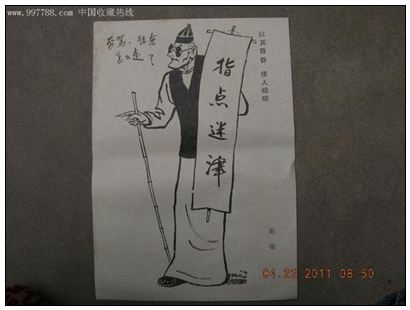 www.997788.com 中国收藏热线
劳驾、往东
怎么走？
指点迷津
以其昏昏 使人昭昭
04.22 2011 08:50